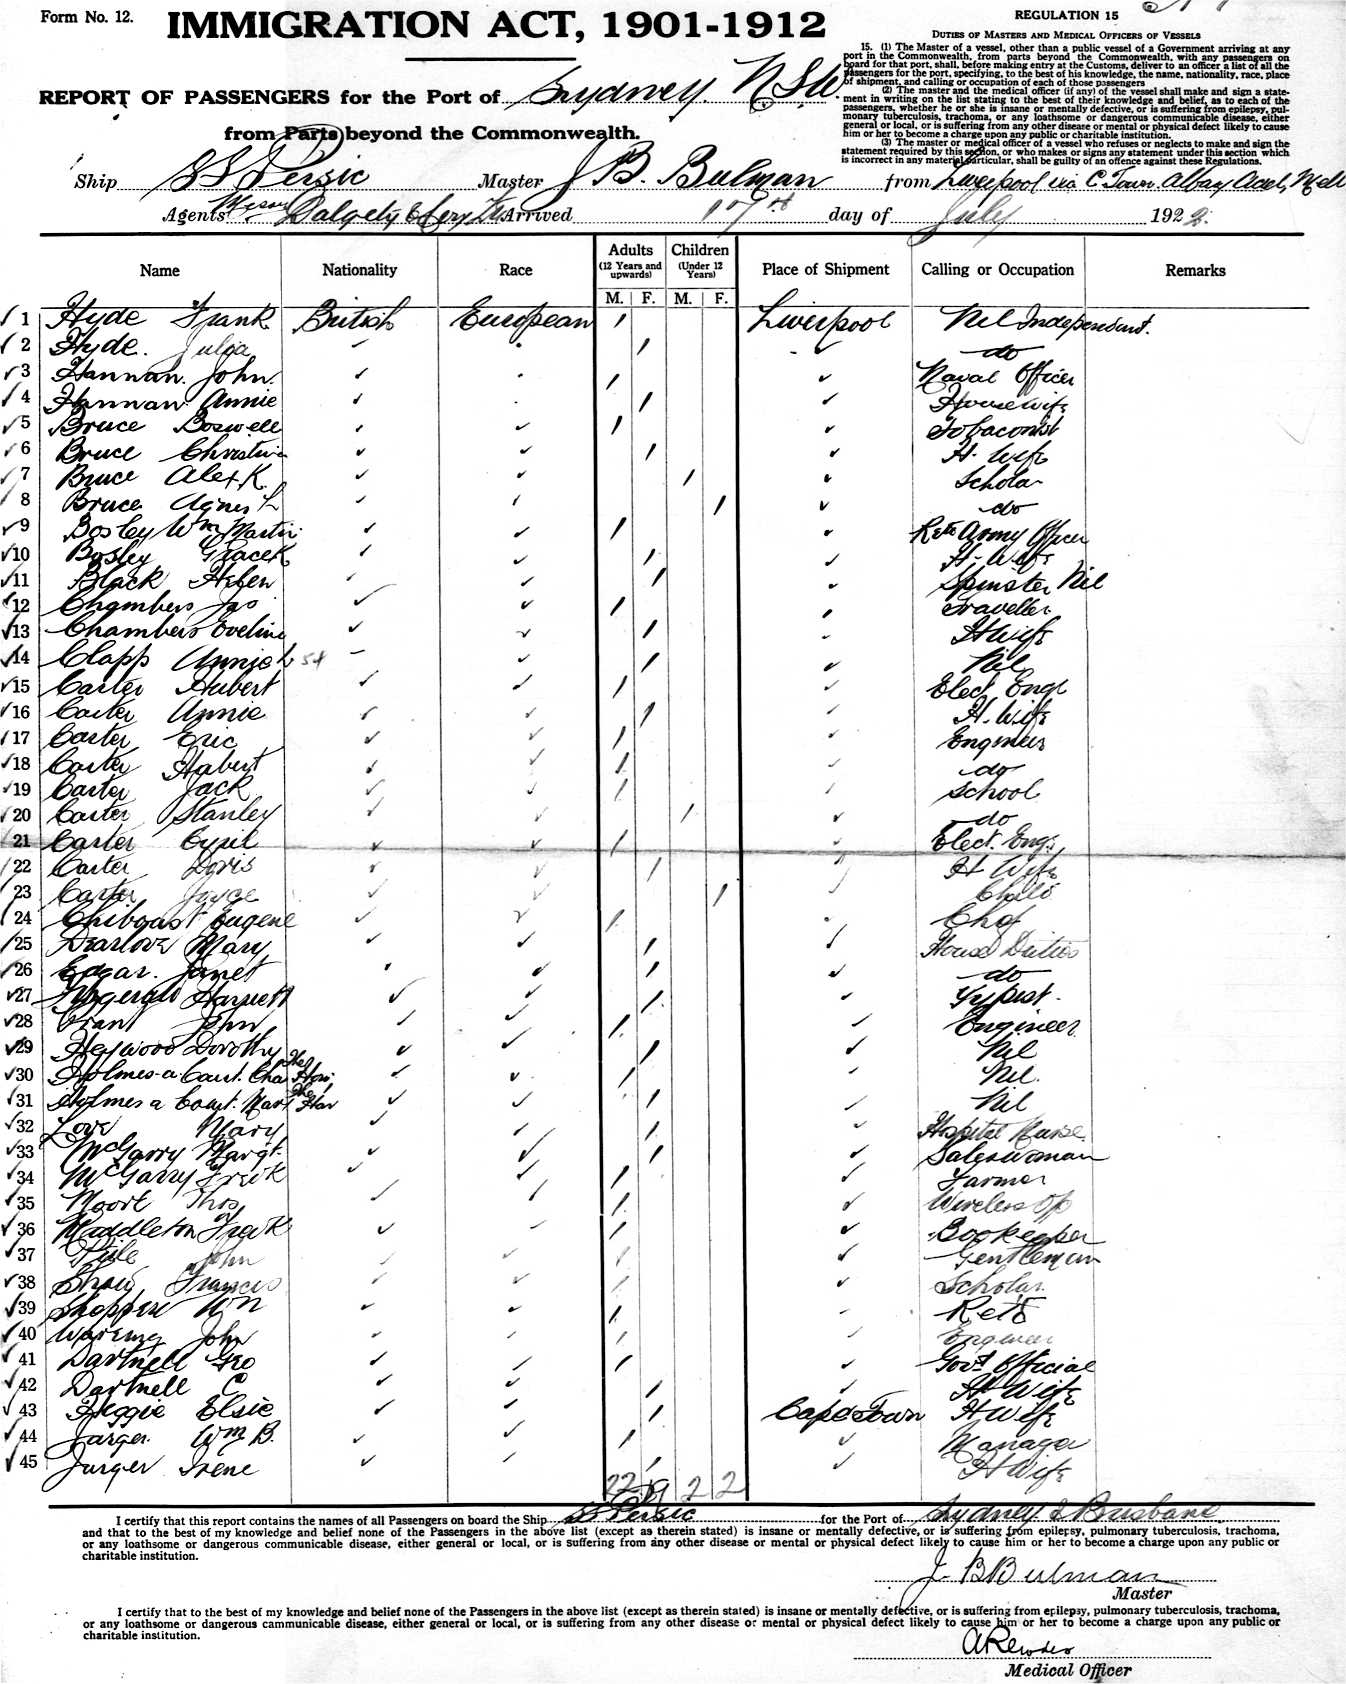 Form No. 12.
IMMIGRATION ACT, 1901-1912
REGULATION 15
DUTIES OF MASTERS AND MEDICAL OFFICERS OF VESSELS
15. (1) The Master of a vessel, other than a public vessel of a Government arriving at any
port in the Commonwealth, from parts beyond the Commonwealth, with any passengers on
board for that port, shall, before making entry at the Customs, deliver to an officer a list of all the
passengers for the port, specifying, to the best of his knowledge, the name, nationality, race, place
of shipment, and calling or occupation of each of those passengers
(2) The master and the medical officer (if any) of the vessel shall make and sign a state-
ment in writing on the list stating to the best of their knowledge and belief, as to each of the
passengers, whether he or she is insane or mentally defective, or is suffering from epilepsy, pul-
monary tuberculosis, trachoma, or any loathsome or dangerous communicable disease, either
general or local, or is suffering from any other disease or mental or physical defect likely to cause
him or her to become a charge upon any public or charitable institution.
(3) The master or medical officer of a vessel who refuses or neglects to make and sign the
statement required by this section, or who makes or signs any statement under this section which
is incorrect in any material particular, shall be guilty of an offence against these Regulations.
REPORT OF PASSENGERS for the Port of Sydney. N.S.W.
from Parts beyond the Commonwealth.
Ship SS Persic Master J B. Bulman from Liverpool via C Town. Albany Adel, Melb
Agents Dalgety & Coy Arrived 17th day of July 1922.
Name Nationality Race Adults (12 Years and upwards) Children (Under 12 Years) Place of Shipment Calling or Occupation Remarks
M. F. M. F.
1 Hyde Frank British European Liverpool Nil Independent.
2 Hyde. Julia do
3 Hannan. John. Naval Officer
4 Hannan Annie Housewife
5 Bruce Boswell Tobaconist
6 Bruce Christina H. Wife
7 Bruce Alex K. Scholar
8 Bruce Agnes L do
9 Bosley Wm Martin Retd Army Officer
10 Bosley Grace K H. Wife
11 Black Helen Spinster Nil
12 Chambers Jas Traveller
13 Chambers Eveline H Wife
14 Clapp Annie L 54 Nil
15 Carter Hubert Elect. Engr
16 Carter Annie H. Wife
17 Carter Eric Engineer
18 Carter Hubert do
19 Carter Jack School
20 Carter Stanley do
21 Carter Cyril Elect. Engr
22 Carter Doris H Wife
23 Carter Joyce Child
24 Chiboast Eugene Chef
25 Dearlove Mary House Duties
26 Edgar. Janet do
27 Fitzgerald Harriett Typist.
28 Grant John Engineer
29 Heywood Dorothy Nil
30 Holmes-a Court. Chas The Hon. Nil.
31 Holmes a Court. Mary The Hon Nil
32 Love Mary Hospital Nurse
33 McGarry Margt. Saleswoman
34 McGarry Fredk Farmer
35 Moort Thos Wireless Op
36 Maddleton Fredk Bookeeper
37 Pyle John Gentleman
38 Shaw Francis Scholar.
39 Shopper Wm Retd
40 Wareing John Engineer
41 Dartnell Geo Govt Official
42 Dartnell C H Wife
43 Heggie Elsie Cape Town H Wife
44 Jarger. Wm B. Manager
45 Jurger Irene H Wife
22 19 2 2
I certify that this report contains the names of all Passengers on board the Ship SS Persic for the Port of Sydney & Brisbane
and that to the best of my knowledge and belief none of the Passengers in the above list (except as therein stated) is insane or mentally defective, or is suffering from epilepsy, pulmonary tuberculosis, trachoma,
or any loathsome or dangerous communicable disease, either general or local, or is suffering from any other disease or mental or physical defect likely to cause him or her to become a charge upon any public or
charitable institution.
J. B Bulman
Master
I certify that to the best of my knowledge and belief none of the Passengers in the above list (except as therein stated) is insane or mentally defective, or is suffering from epilepsy, pulmonary tuberculosis, trachoma,
or any loathsome or dangerous cammunicable disease, either general or local, or is suffering from any other disease or mental or physical defect likely to cause him or her to become a charge upon any public or
charitable institution.
Medical Officer